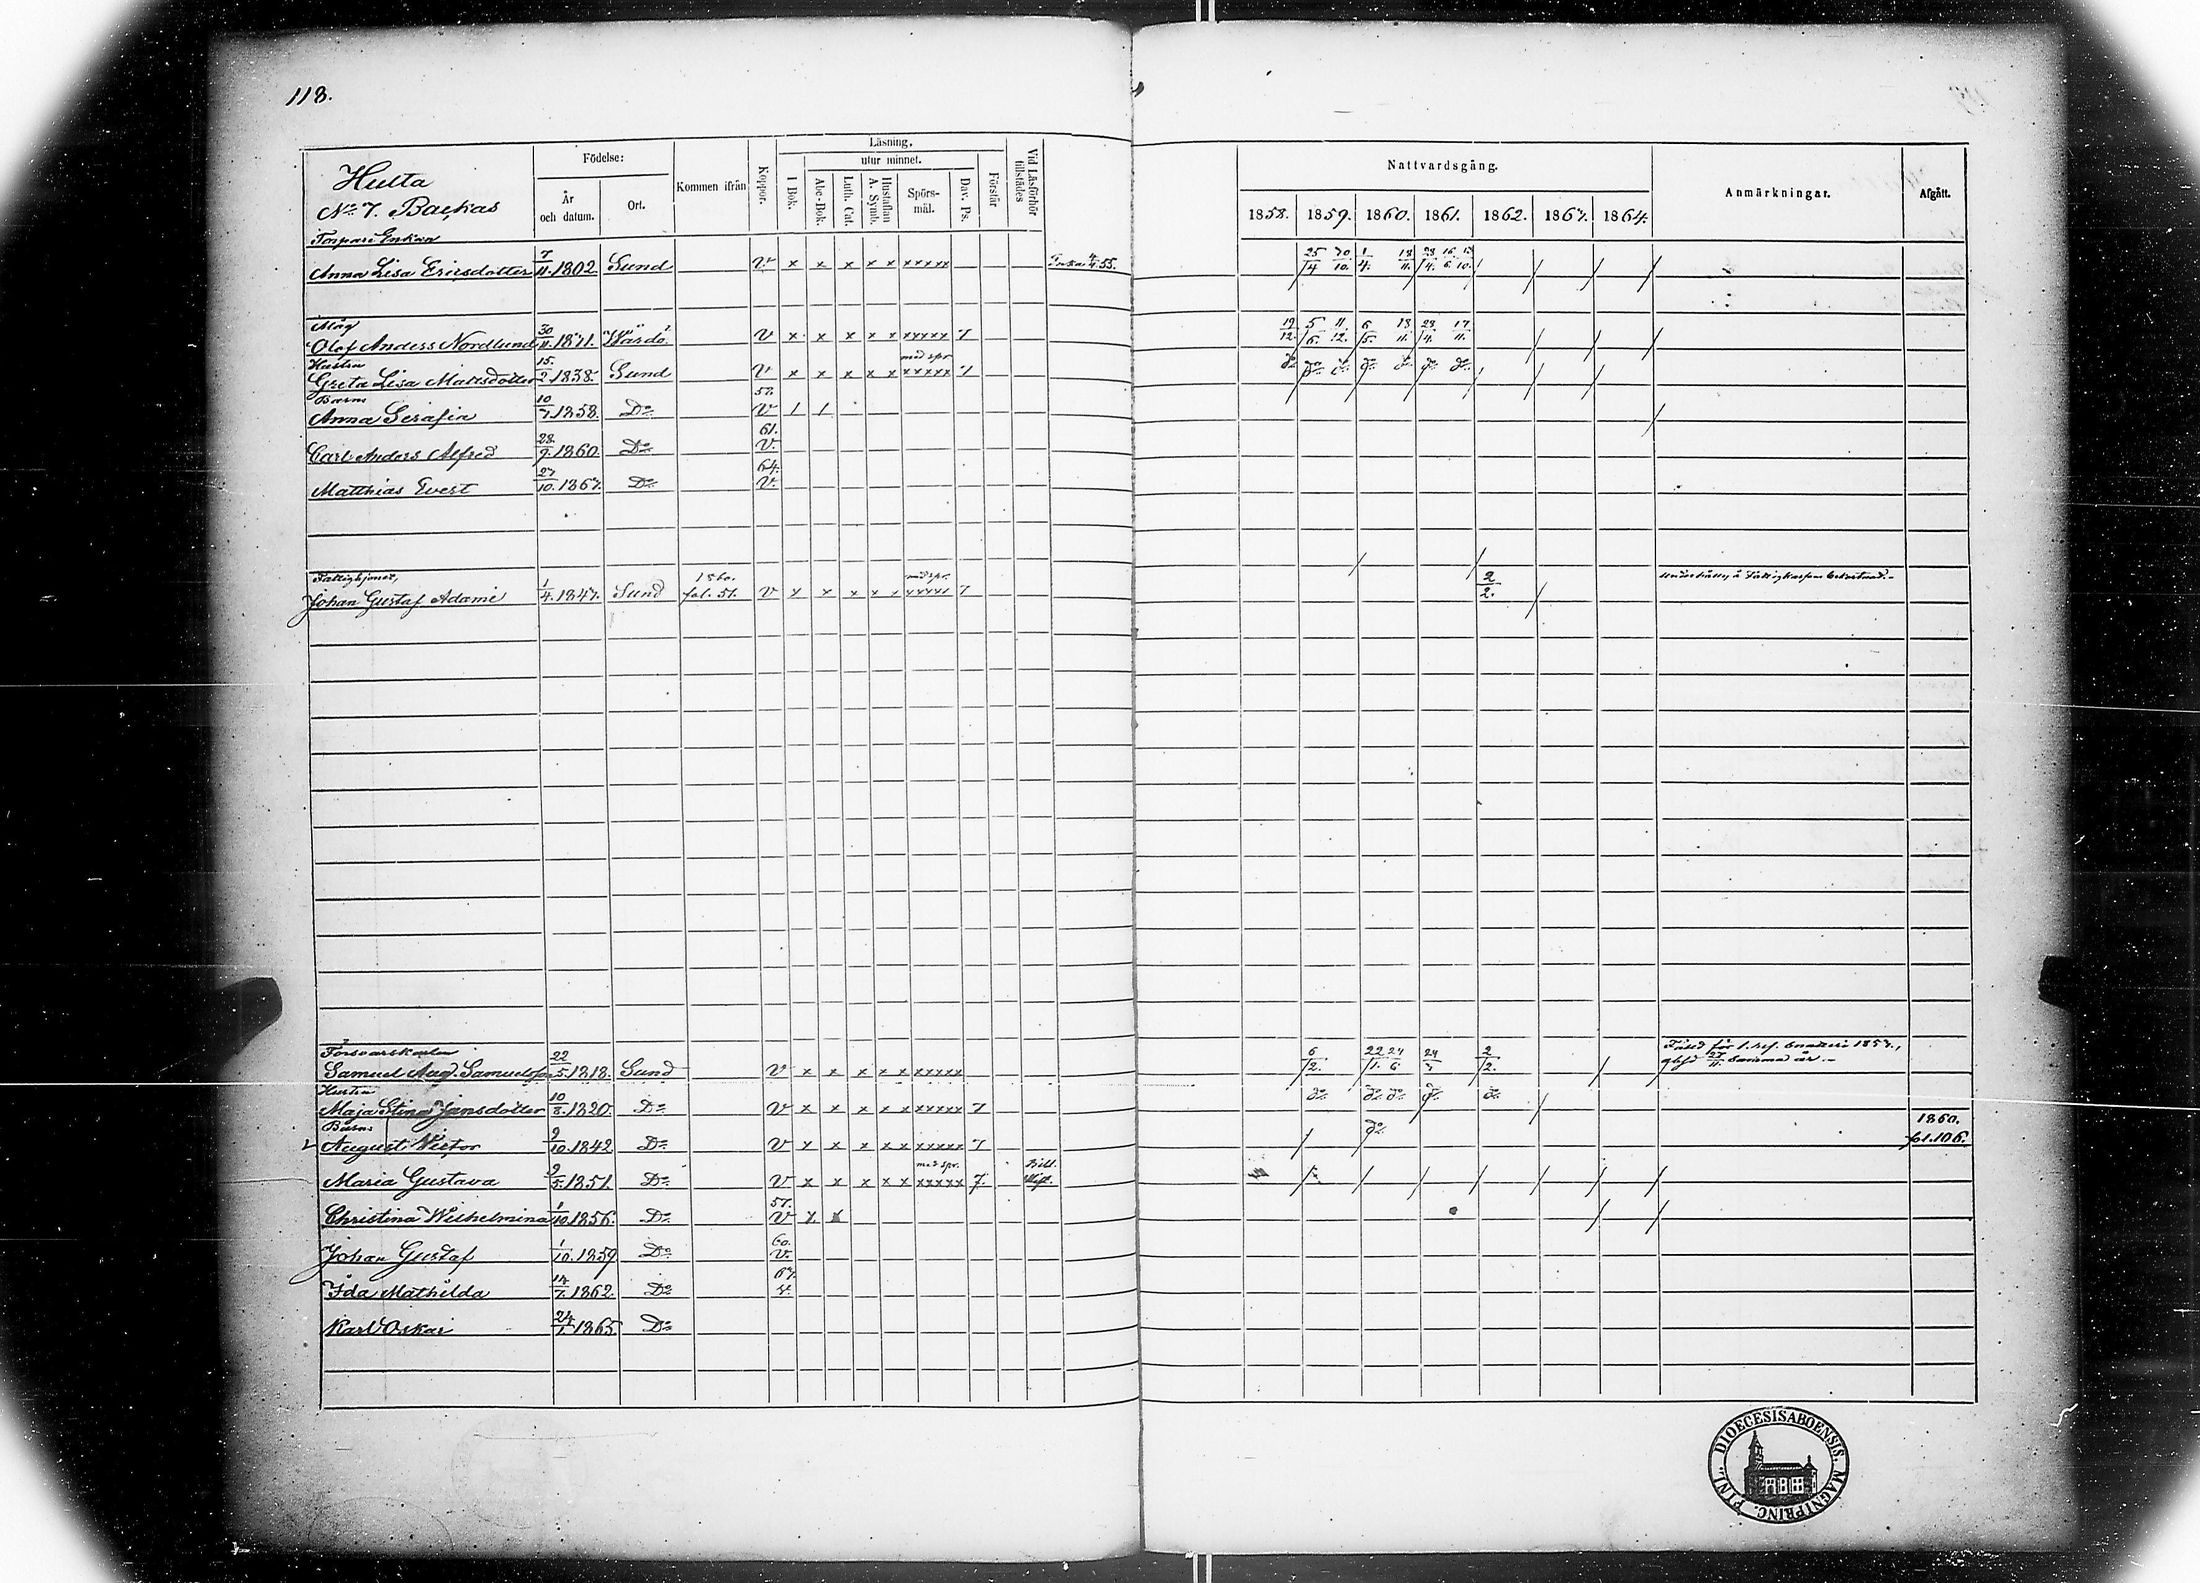 118.
Hulta
No 7. Backas
Födelse:
År och datum.
Ort.
Kommen ifrån
Koppor.
Läsning,
utur minnet.
I Bok.
Abc-Bok.
Luth. Cat.
Hustaflan A. Symb.
Spörs-mål.
Dav. Ps.
Förstår
Vid Läsförhör tillstädes
Nattvardsgång.
1858. 1859. 1860. 1861. 1862. 1863. 1864.
Anmärkningar.
Afgått.
Torpare Enkan
Anna Lisa Ericsdotter 7/11. 1802. Sund v. x x x x x xxxxx Enka 55. 25/4 30/10. 1/4. 18/11. 28/4. 16/6. 10.
Måg
Olof Anders Nordlund 30/11. 1831. Wårdö. v x x x x x xxxxx 7 19/12. 5/6. 11/12. 6/5. 18/11. 28/4. 17/11.
Hustru med spr
Greta Lisa Mattsdotter 15/2. 1838. Sund v x x x x x xxxxx 7 do do do do do do do
Barn: 58.
Anna Serafia 10/7. 1858. Do v / /
61.
Carl Anders Alfred 28/9. 1860. Do v.
64.
Matthias Evert 27/10. 1863. Do v.
Fattighjonet, 1860. med spr.
Johan Gustaf Adamé 1/4. 1847. Sund fol. 51. v x x x x x xxxxx 7 2/2.
Försvarskarlen
Samuel Aug. Samuelsson 22/5. 1818. Sund v x x x x x xxxxx 6/2. 22/1. 24/6 2/2.
1853.,
27/11. samma år. -
Hustru
Maja Stina Jansdotter 10/8. 1820. Do v x x x x x xxxxx 7 do do do do do
Barn: 1860.
August Victor 9/10. 1842. Do v x x x x x xxxxx 7 do fol. 106.
med spr.
Maria Gustava 9/5. 1851. Do v x x x x x xxxxx 7.
57.
Christina Wilhelmina 1/10. 1856. Do v
60.
Johan Gustaf 1/10. 1859. Do v.
63.
Ida Mathilda 14/7. 1862. Do v.
Karl Oskar 24/1. 1865. Do
DIOECESIS ABOENSIS. MAGNI PRINC. FINL.